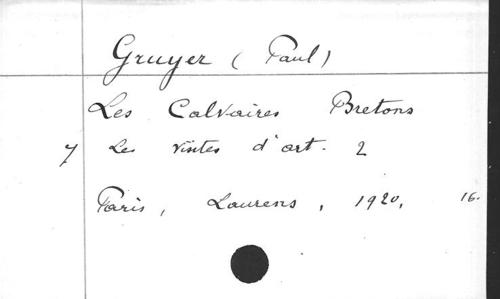 Gruyer (Paul)
Les Calvaires Bretons
7 Les visites d'art. 2
Paris, Laurens, 1920, 16.